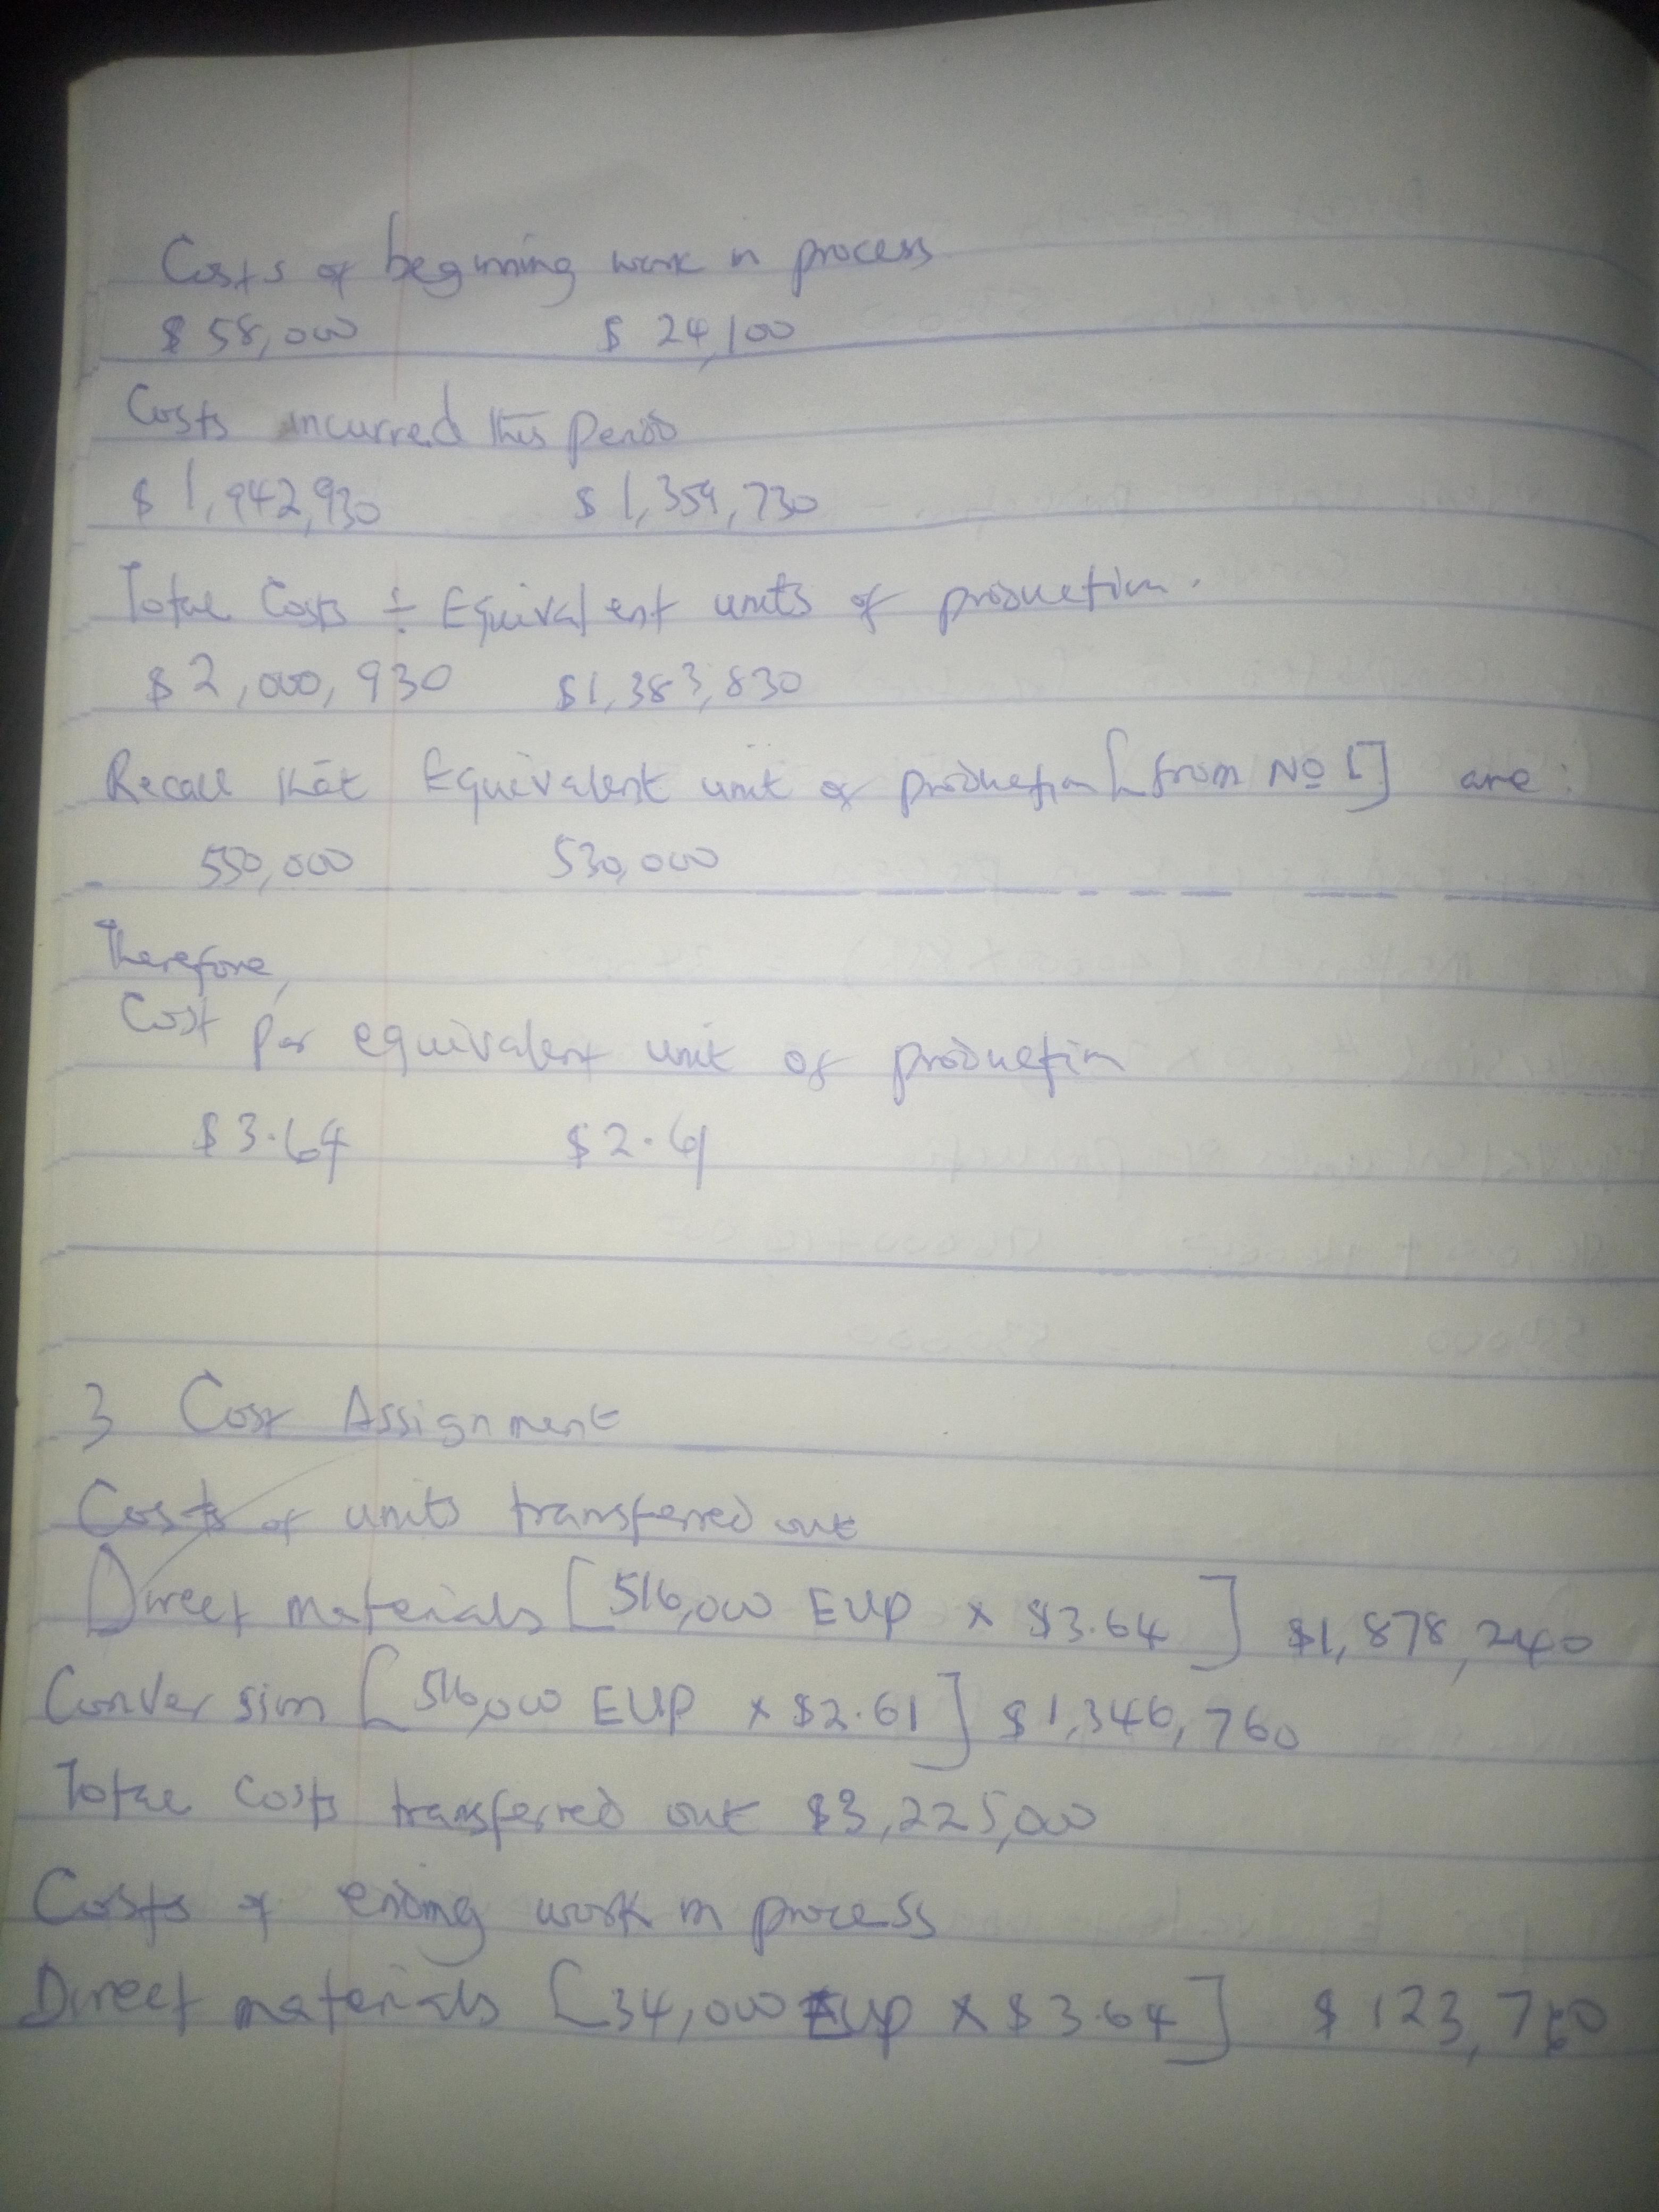 Costs of beginning work in process
$ 58,000 $ 24,100
Costs incurred this period
$ 1,942,930 $ 1,359,730
Total Costs ÷ Equivalent units of production.
$ 2,000,930 $1,383,830
Recall that Equivalent unit of production [from No 1] are:
550,000 530,000
Therefore,
Cost per equivalent unit of production
$3.64 $2.61
3 Cost Assignment
Costs of units transferred out
Direct materials [516,000 EUP x $3.64] $1,878,240
Conversion [516,000 EUP x $2.61] $1,346,760
Total costs transferred out $3,225,000
Costs of ending work in process
Direct materials [34,000 EUP x $3.64] $123,760